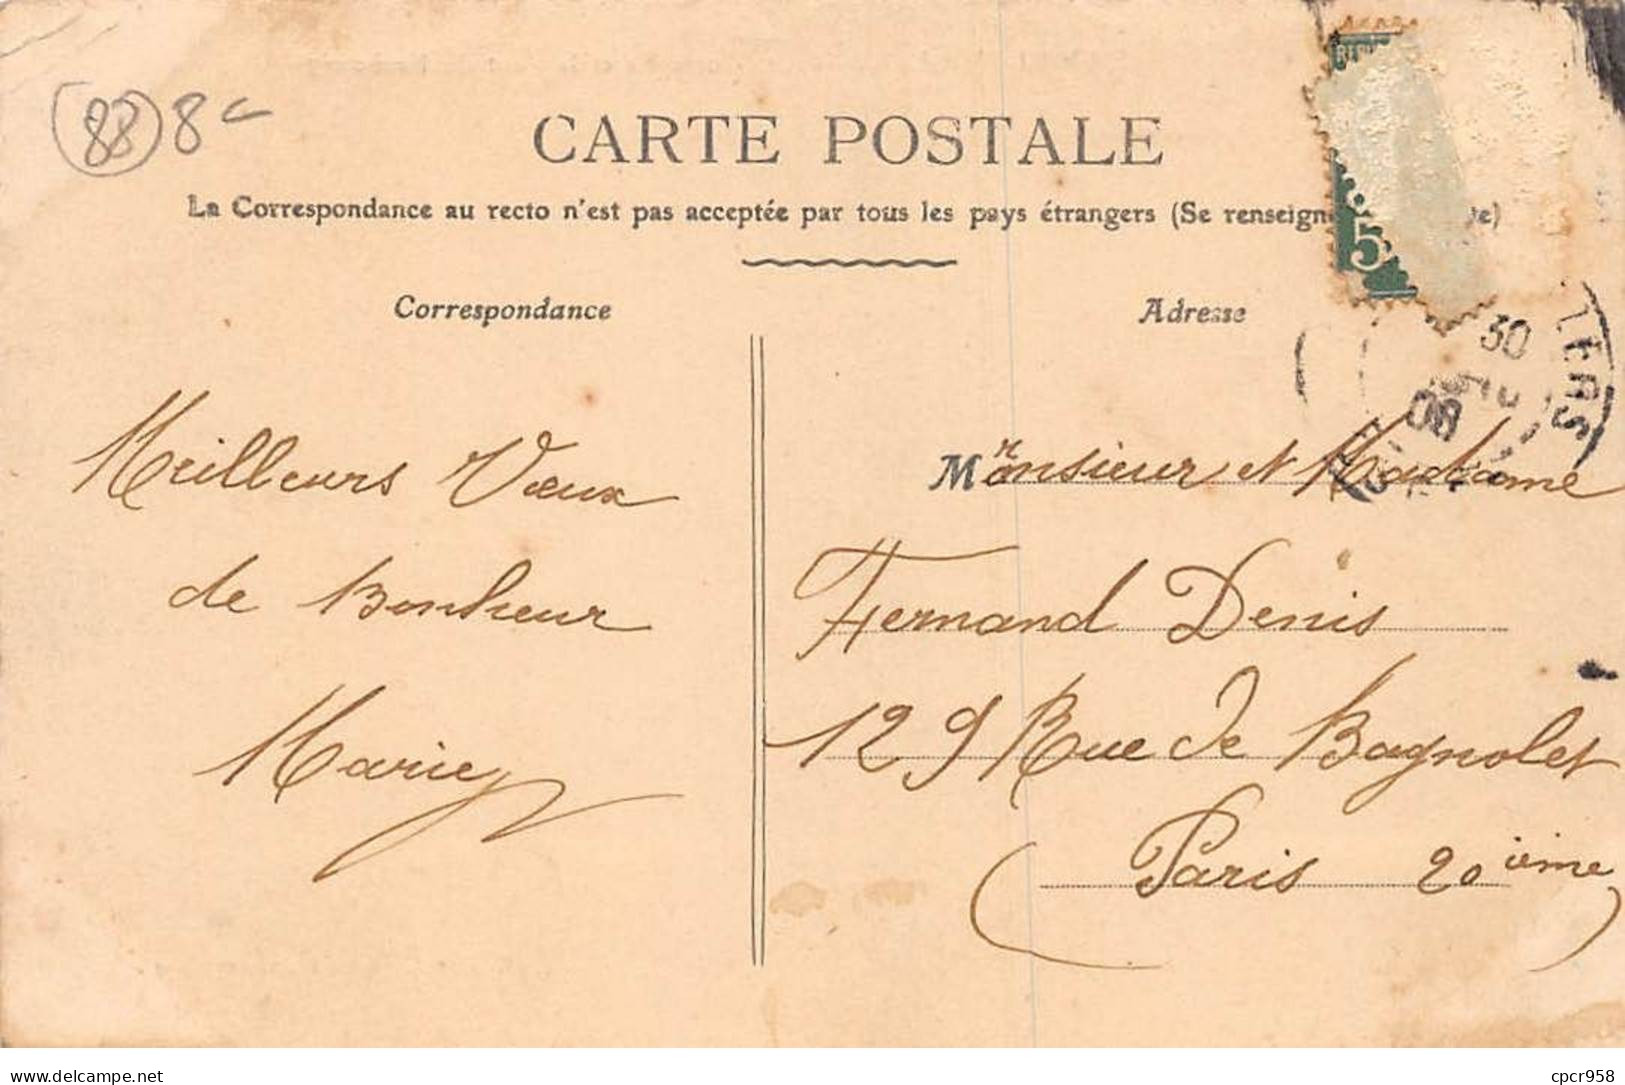 (88) 8
CARTE POSTALE
La Correspondance au recto n'est pas acceptée par tous les pays étrangers (Se renseign
Correspondance
Adresse
5
30
08
Meilleurs Vœux
de Bonheur
Marie
Monsieur et Madame
Fernand Denis
129 Rue de Bagnolet
Paris 20ième
www.delcampe.net
cpcr958